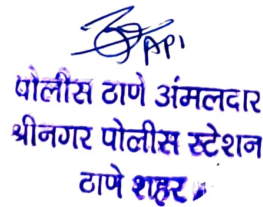 API
पोलीस ठाणे अंमलदार
श्रीनगर पोलीस स्टेशन
ठाणे शहर